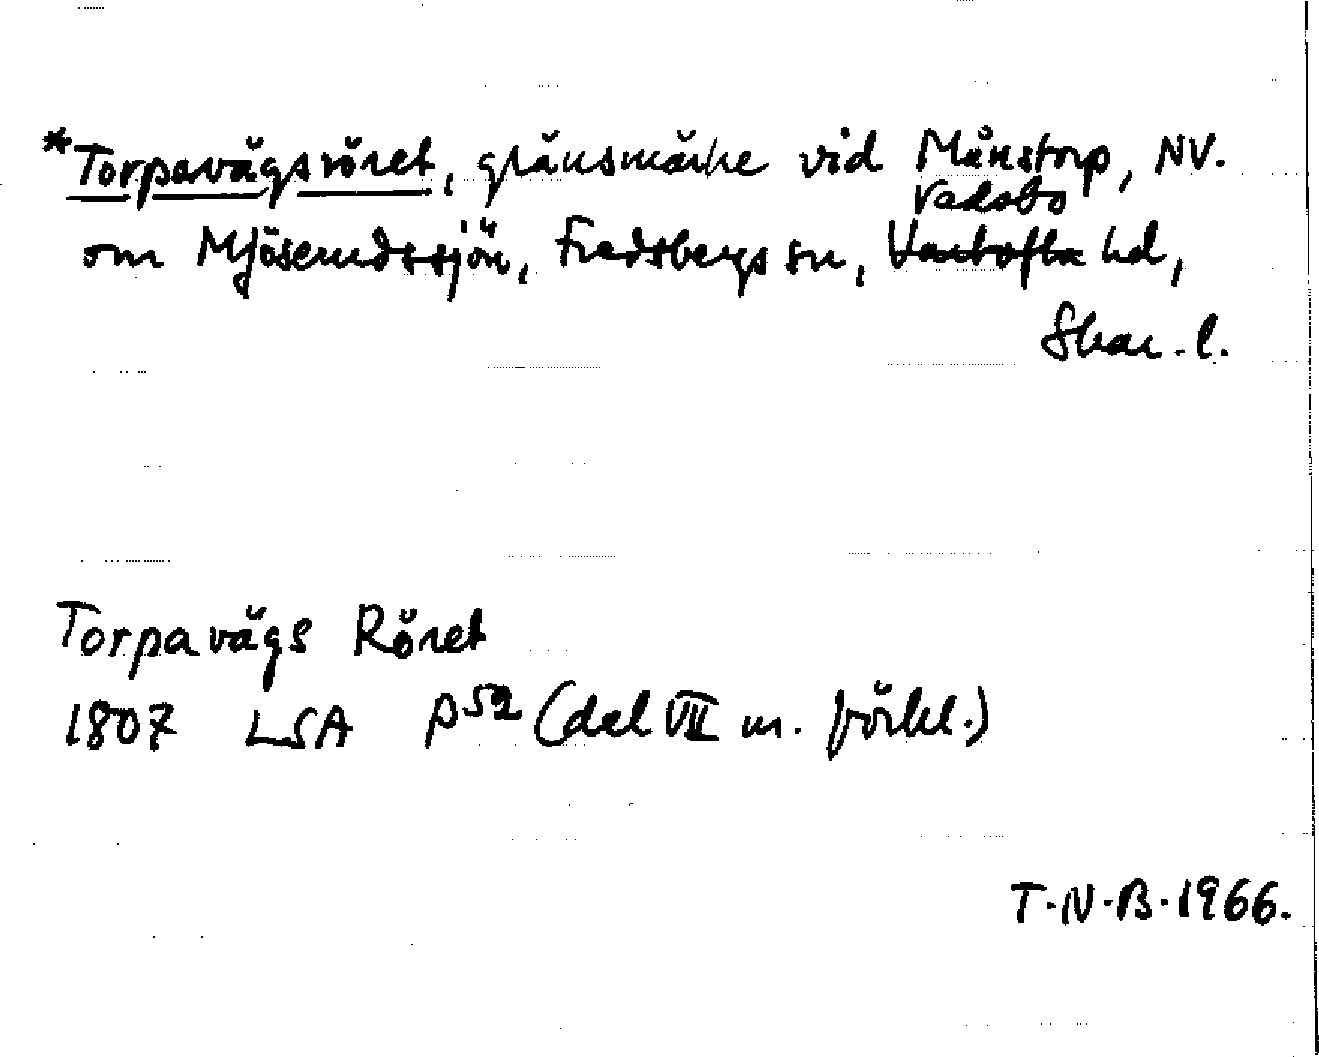 *Torpavägsröret, gränsmärke vid Månstorp, NV.
Vadsbo
om Mjösemdssjön, Fredsbergs sn, Vartofta hd,
Skar. l.
Torpavägs Röret
1807 LSA P52 (del VIII m. förkl.)
T.N.B. 1966.